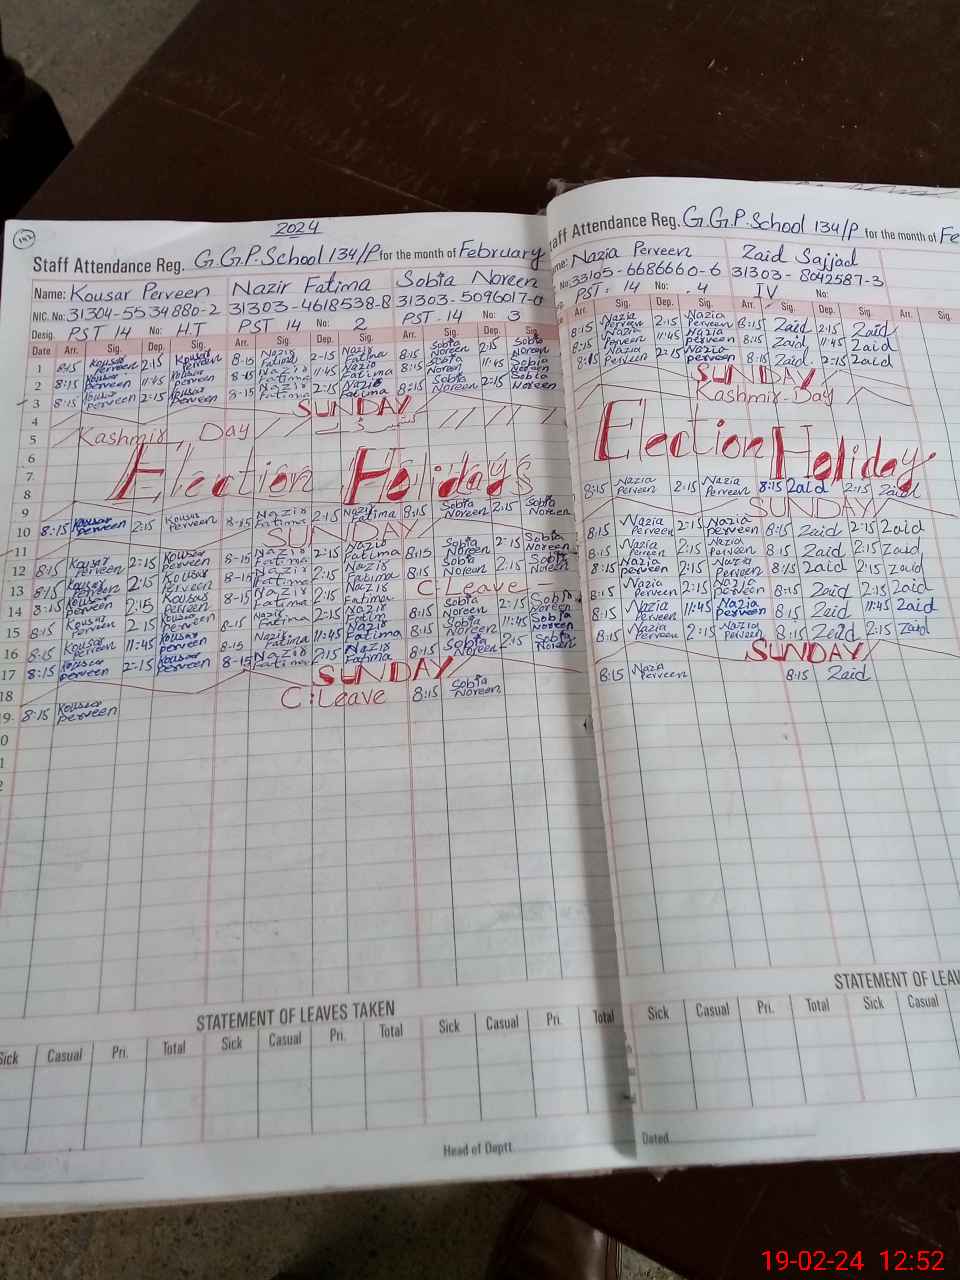 2024
Staff Attendance Reg. G.G.P. School 134/P for the month of February
Name: Kousar Perveen Nazir Fatima Sobia Noreen
NIC. No: 31304-5534880-2 31303-4618538-8 31303-5096017-0
Desig. PST 14 No: H.T PST 14 No: 2 PST. 14 No: 3
Date Arr. Sig. Dep. Sig. Arr. Sig. Dep. Sig. Arr. Sig. Dep. Sig.
1 8:15 Kousar Perveen 2:15 Kousar Perveen 8-15 Nazir Fatima 2-15 Nazir Fatima 8:15 Sobia Noreen 2:15 Sobia Noreen
2 8:15 Kousar Perveen 11:45 Kousar Perveen 8-15 Nazir Fatima 11:45 Nazir Fatima 8:15 Sobia Noreen 11:45 Sobia Noreen
3 8:15 Kousar Perveen 2:15 Kousar Perveen 8-15 Nazir Fatima 2:15 Nazir Fatima 8:15 Sobia Noreen 2:15 Sobia Noreen
4 SUNDAY
5 Kashmir Day
6
7 Election Holidays
8
9
10 8:15 Kousar Perveen 2:15 Kousar Perveen 8-15 Nazir Fatima 2:15 Nazir Fatima 8:15 Sobia Noreen 2:15 Sobia Noreen
11 SUNDAY
12 8:15 Kousar Perveen 2:15 Kousar Perveen 8-15 Nazir Fatima 2:15 Nazir Fatima 8:15 Sobia Noreen 2:15 Sobia Noreen
13 8:15 Kousar Perveen 2:15 Kousar Perveen 8-15 Nazir Fatima 2:15 Nazir Fatima 8:15 Sobia Noreen 2:15 Sobia Noreen
14 8:15 Kousar Perveen 2:15 Kousar Perveen 8-15 Nazir Fatima 2:15 Nazir Fatima C-Leave
15 8:15 Kousar Perveen 2:15 Kousar Perveen 8-15 Nazir Fatima 2:15 Nazir Fatim 8:15 Sobia Noreen 2:15 Sobia Noreen
16 8:15 Kousar Perveen 11:45 Kousar Perveen 8-15 Nazir Fatima 11:45 Nazir Fatima 8:15 Sobia Noreen 11:45 Sobia Noreen
17 8:15 Kousar Perveen 2:15 Kousar Perveen 8-15 Nazir Fatima 2:15 Nazir Fatima 8:15 Sobia Noreen 2:15 Sobia Noreen
18 SUNDAY
9 8:15 Kousar Perveen C:Leave 8:15 Sobia Noreen
0
1
2
STATEMENT OF LEAVES TAKEN
Sick Casual Pri. Total Sick Casual Pri. Total Sick Casual Pri. Total
Head of Deptt.
taff Attendance Reg. G.G.P. School 134/P for the month of Fe
me: Nazia Perveen Zaid Sajjad
No: 33105-6686660-6 31303-8042587-3
PST. 14 .4 IV No:
Sig. Dep. Sig. Arr. Sig. Dep. Sig. Arr. Sig.
8:15 Nazia Perveen 2:15 Nazia Perveen 8:15 Zaid 2:15 Zaid
8:15 Nazia Perveen 11:45 Nazia Perveen 8:15 Zaid 11:45 Zaid
8:15 Nazia Perveen 2:15 Nazia Perveen 8:15 Zaid 2:15 Zaid
SUNDAY
Kashmir Day
Election Holiday
8:15 Nazia Perveen 2:15 Nazia Perveen 8:15 Zaid 2:15 Zaid
SUNDAY
8:15 Nazia Perveen 2:15 Nazia Perveen 8:15 Zaid 2:15 Zaid
8:15 Nazia Perveen 2:15 Nazia Perveen 8:15 Zaid 2:15 Zaid
8:15 Nazia Perveen 2:15 Nazia Perveen 8:15 Zaid 2:15 Zaid
8:15 Nazia Perveen 2:15 Nazia Perveen 8:15 Zaid 2:15 Zaid
8:15 Nazia Perveen 11:45 Nazia Perveen 8:15 Zaid 11:45 Zaid
8:15 Nazia Perveen 2:15 Nazia Perveen 8:15 Zaid 2:15 Zaid
SUNDAY
8:15 Nazia Perveen 8:15 Zaid
STATEMENT OF LEAV
Sick Casual Pri. Total Sick Casual
Dated
19-02-24 12:52